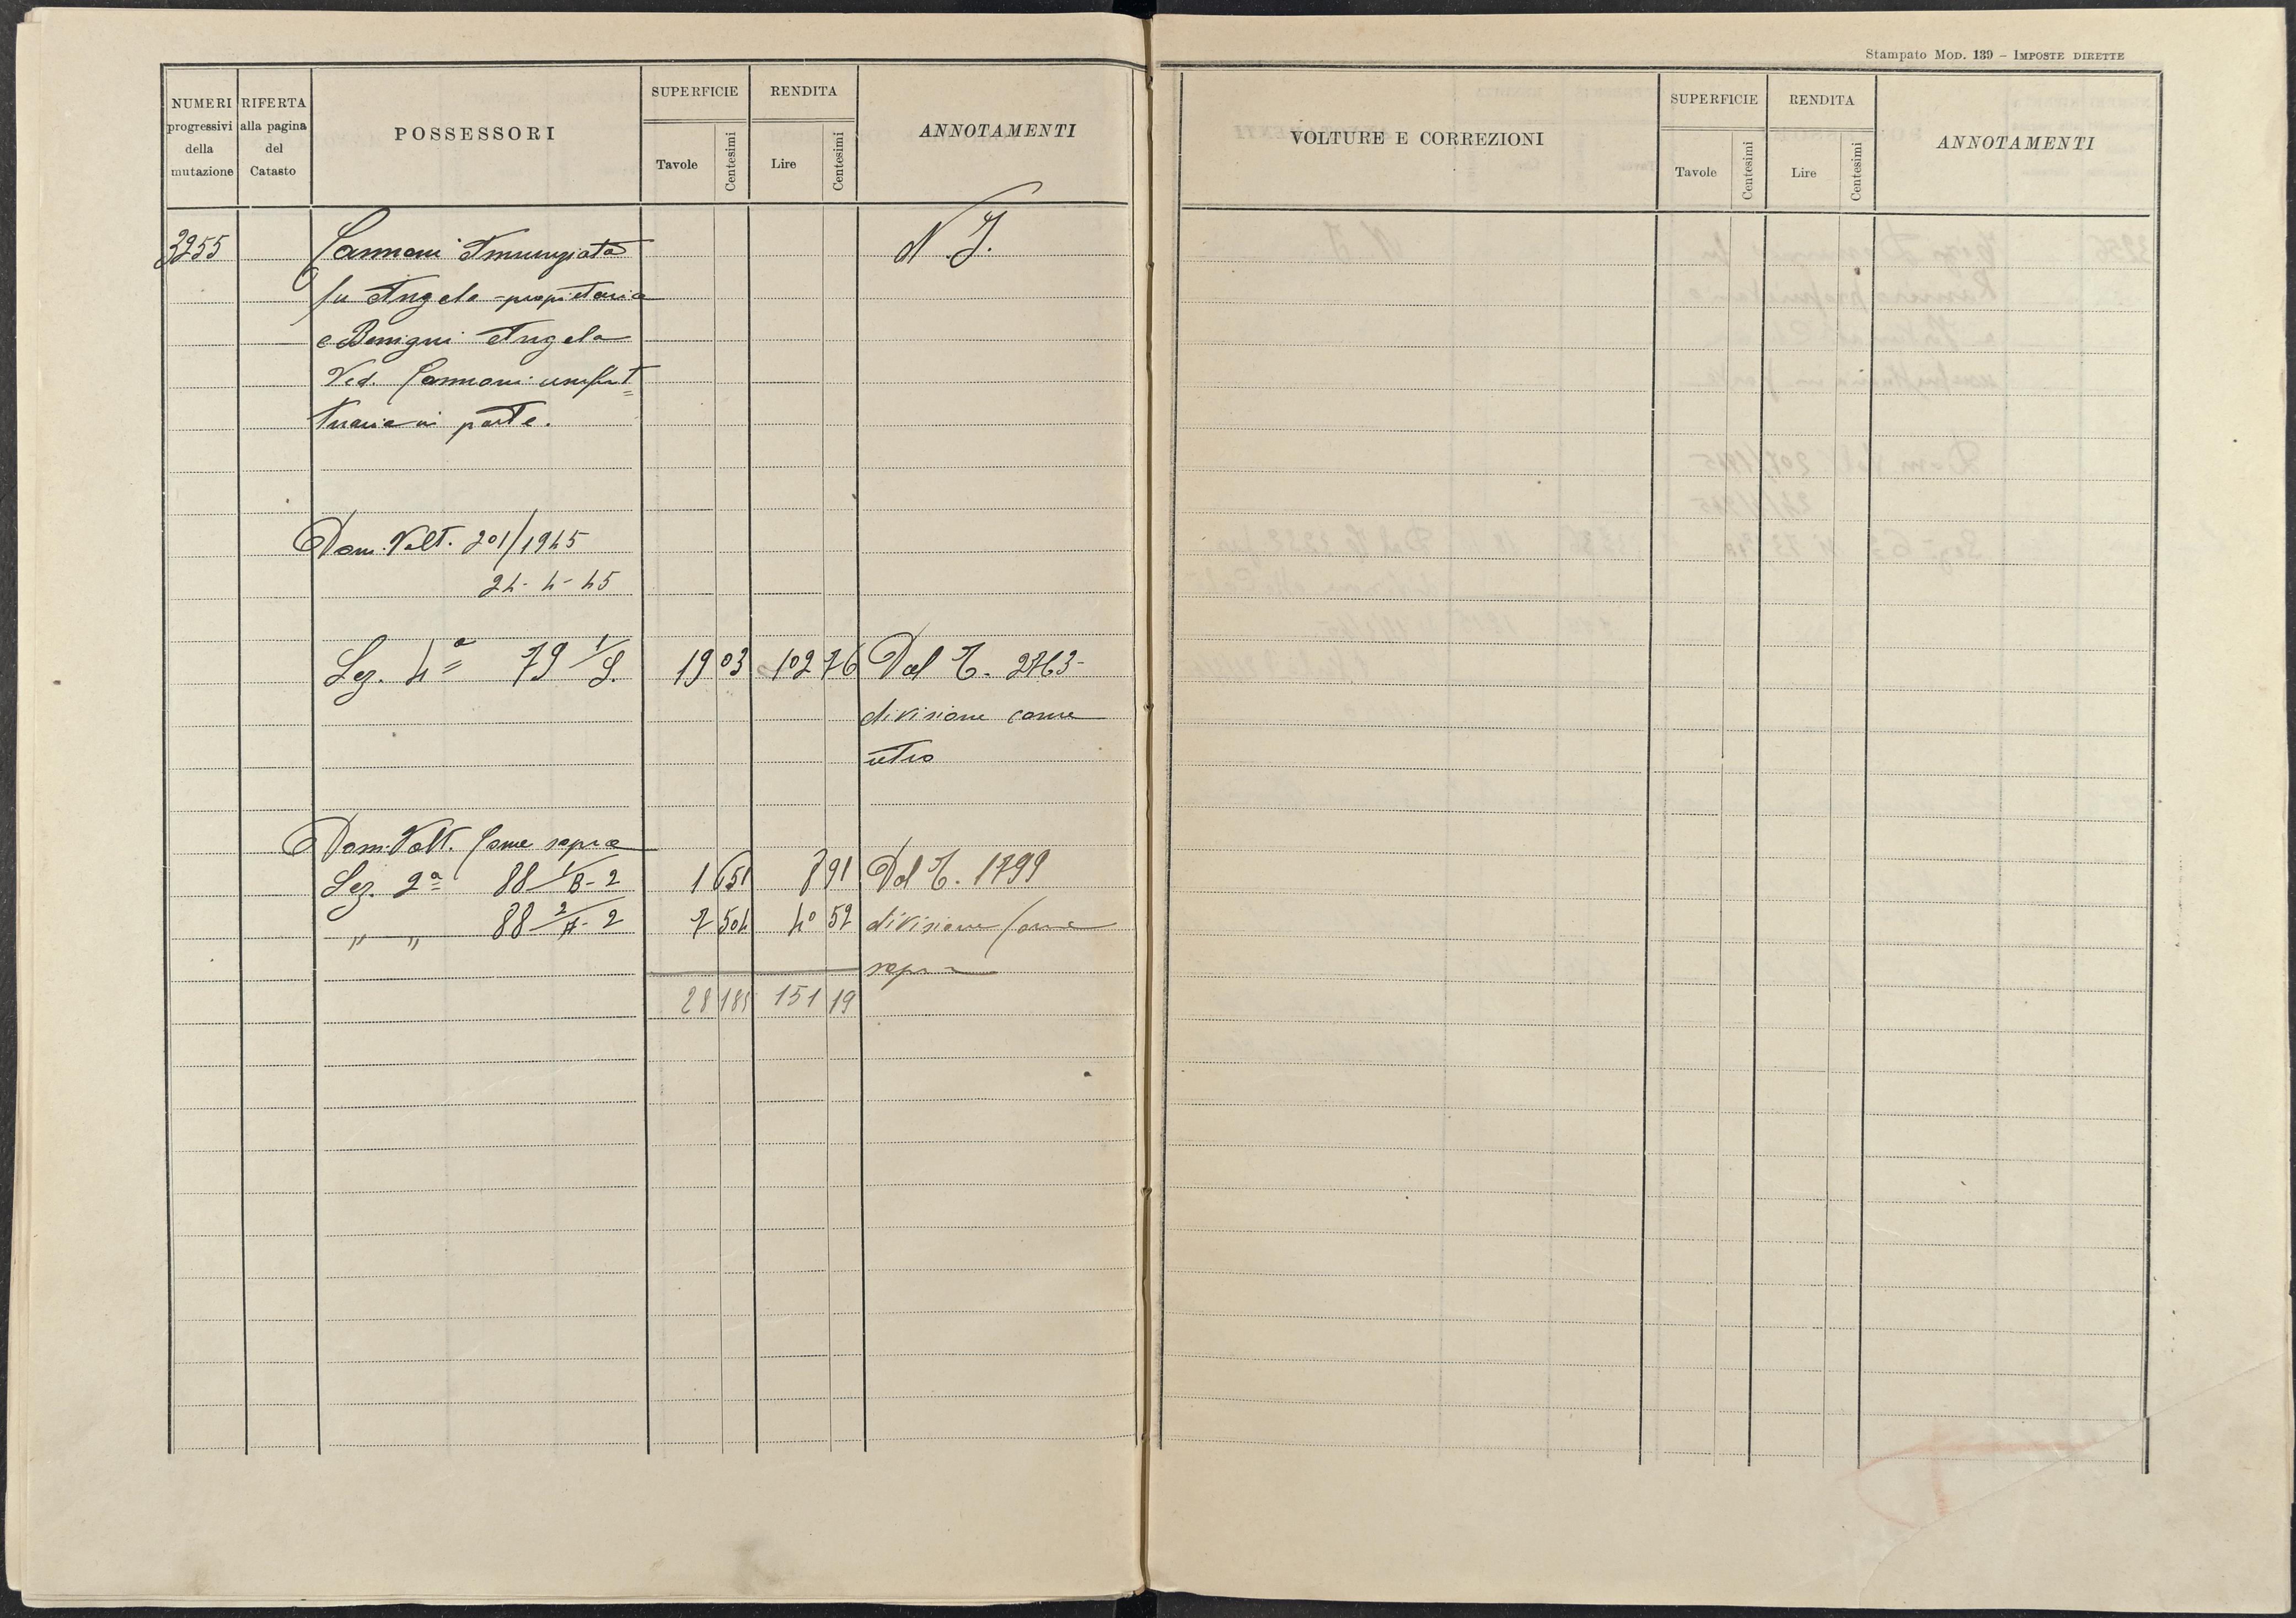 Stampato Mod. 139 – Imposte dirette
NUMERI progressivi della mutazione
RIFERTA alla pagina del Catasto
POSSESSORI
SUPERFICIE
Tavole
Centesimi
RENDITA
Lire
Centesimi
ANNOTAMENTI
VOLTURE E CORREZIONI
SUPERFICIE
Tavole
Centesimi
RENDITA
Lire
Centesimi
ANNOTAMENTI
3255 Cannoni Annunziata N. I.
fu Angelo - proprietaria
e Benigni Angela
Ved. Cannoni usufrut=
tuaria in parte.
Dom. Volt. 201/1945
24-4-45
Sez. 4ª 79 1/S. 19 03 102 76 Dal T. 2763-
divisione come
retro
Dom. Volt. Come sopra
Sez. 2ª 88 1/B-2 1 651 8 91 Dal T. 1799
" " 88 2/A-2 7 504 40 52 divisione Come
sopra
28 185 151 19